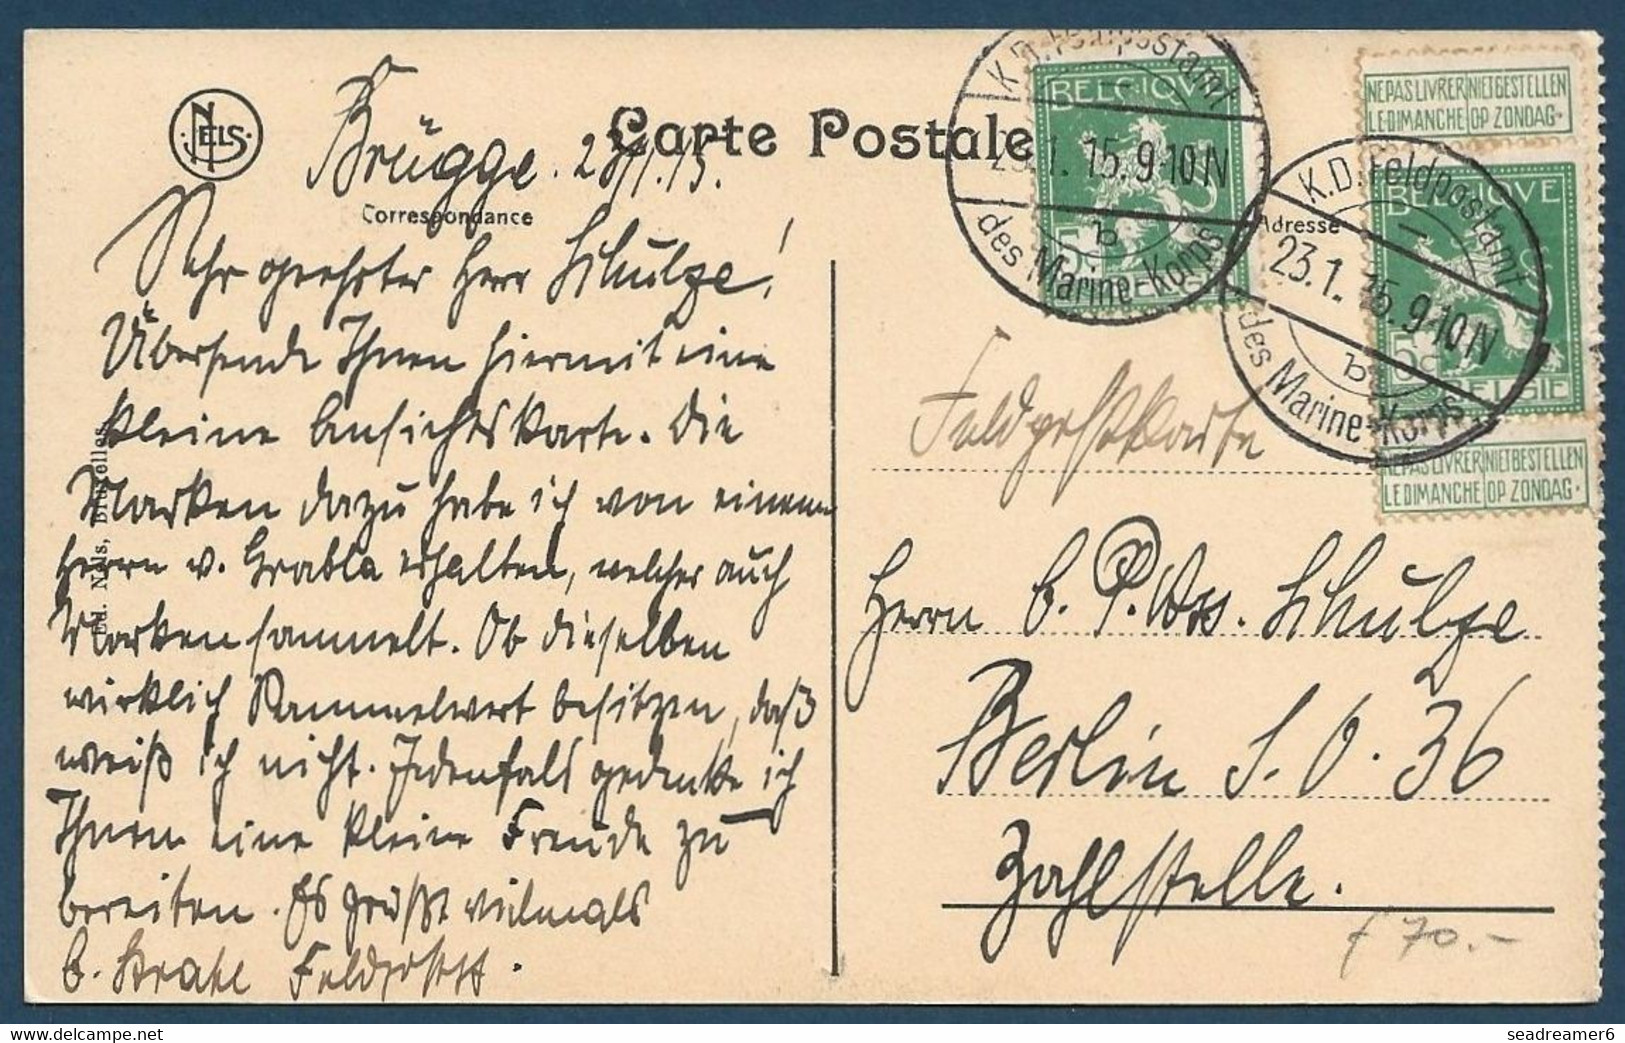 NELS
Carte Postale
Brügge. 23/1.15.
Correspondance
Sehr geehrter Herr Schulze!
Übersende Ihnen hiermit eine
kleine Ansichtskarte. Die
Marken dazu habe ich von einem
Herrn v. Grabla erhalten, welcher auch
Marken sammelt. Ob dieselben
wirklich Sammelwert besitzen, daß
weiß ich nicht. Jedenfalls gedenke ich
Ihnen eine kleine Freude zu
bereiten. Es grüßt vielmals
Feldpost.
Ed. Nels, Bruxelles
K.D. Feldpostamt
23.1.15.9-10N
b
des Marine-Korps
BELGIQUE
5c
BELGIË
K.D. Feldpostamt
23.1.15.9-10N
b
des Marine-Korps
NE PAS LIVRER NIET BESTELLEN
LE DIMANCHE OP ZONDAG.
BELGIQUE
5c
BELGIË
NE PAS LIVRER NIET BESTELLEN
LE DIMANCHE OP ZONDAG.
Adresse
Feldpostkarte
Herrn O. P. Ass. Schulze
Berlin S.O. 36
Zahlstelle.
f 70.-
seadreamer6